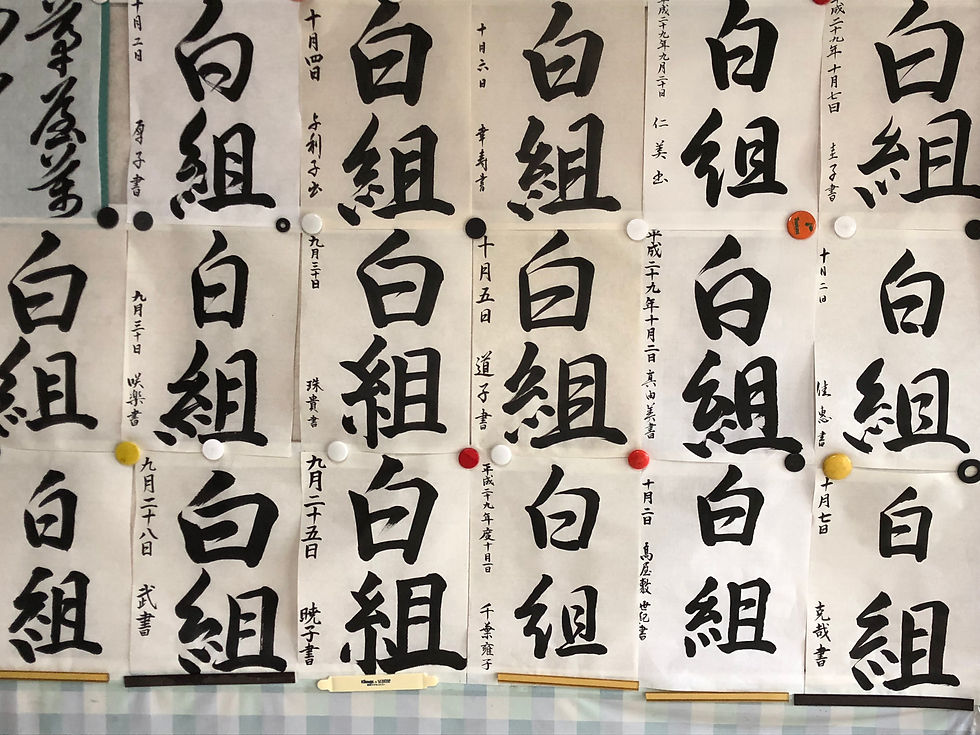 白組
平成二十九年十月七日 圭子書
白組
平成二十九年九月二十日 仁美書
白組
十月六日 幸寿書
白組
十月四日 与利子書
白組
十月二日 厚子書
白組
十月二日 佳恵書
白組
平成二十九年十月二日 真由美書
白組
十月五日 道子書
白組
九月三十日 珠貴書
白組
九月三十日 咲楽書
白組
白組
十月七日 克哉書
白組
十月二日 髙屋敷世紀書
白組
平成二十九年度十月一日 千葉雍子
白組
九月二十五日 暁子書
白組
九月二十八日 武書
白組